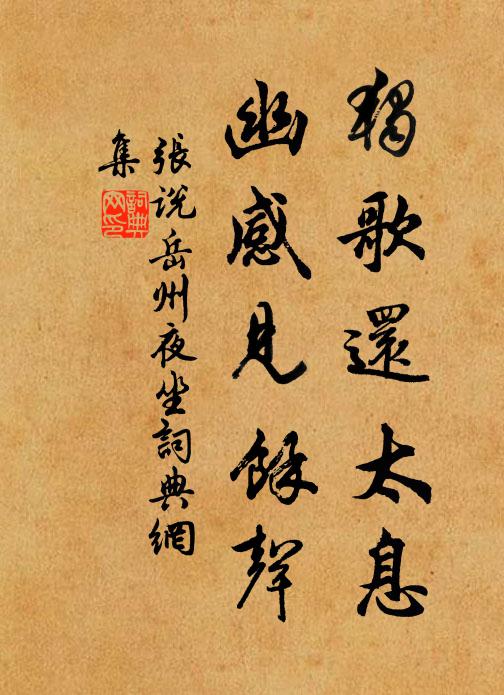 獨歌還太息
幽感見餘聲
張說岳州夜坐詞典網
集
詞典
网印